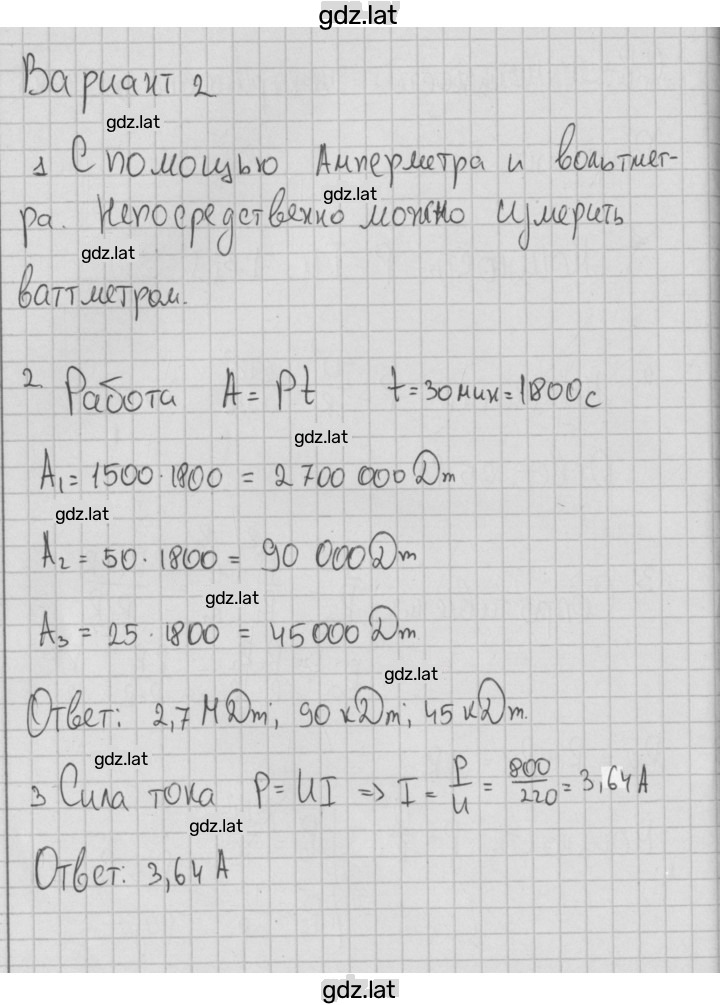 gdz.lat
Вариант 2
gdz.lat
1 С помощью Амперметра и вольтмет-
gdz.lat
ра. Непосредственно можно измерить
gdz.lat
ваттметром.
2. Работа A = Pt t = 30 мин = 1800 с
gdz.lat
A₁ = 1500 · 1800 = 2 700 000 Дж
gdz.lat
A₂ = 50 · 1800 = 90 000 Дж
gdz.lat
A₃ = 25 · 1800 = 45000 Дж
gdz.lat
Ответ: 2,7 МДж; 90 кДж; 45 кДж.
gdz.lat
3 Сила тока P = UI => I = P/U = 800/220 = 3,64 А
gdz.lat
Ответ: 3,64 А
gdz.lat